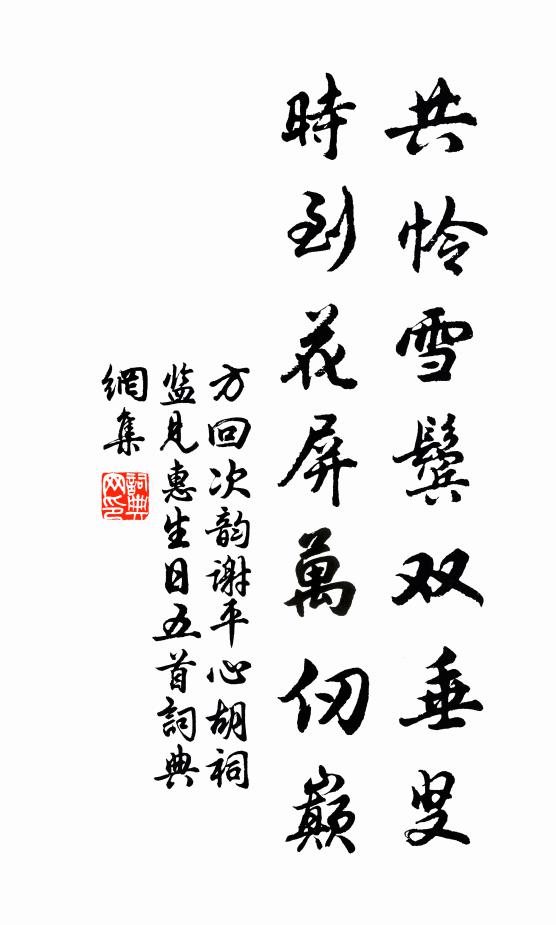 共怜雪鬓双垂叟
時到花屏萬仞巔
方回次韵谢平心胡祠
监見惠生日五首詞典
網集
詞典
网印